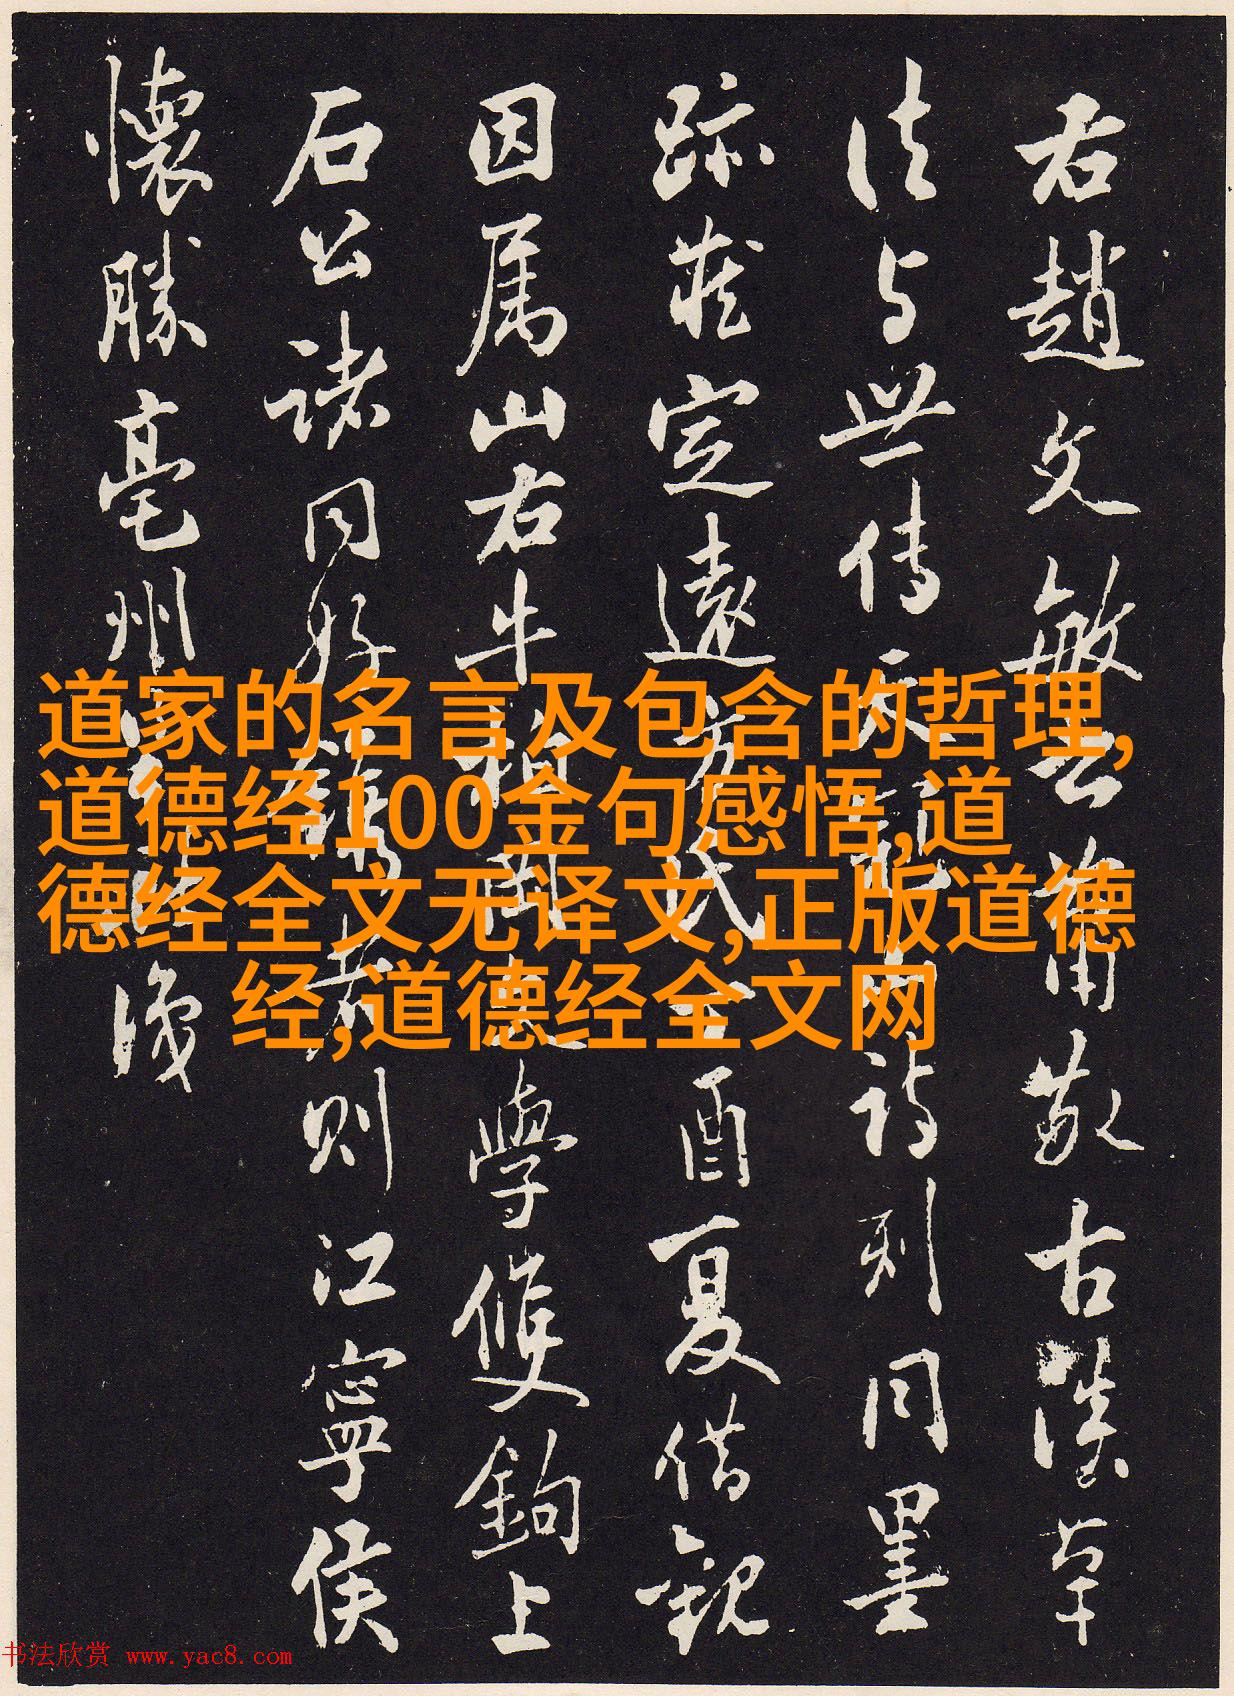 右趙文敏書蕭敬古漢草
法与世傳天冠山詩刻同墨
跡藏定遠方氏丁酉夏借観
因属山右牛
學雙鉤上
石公諸同好
則江寧侯
懷勝亳州
道家的名言及包含的哲理,
道德经100金句感悟,道
德经全文无译文,正版道德
经,道德经全文网
书法欣赏 www.yac8.com